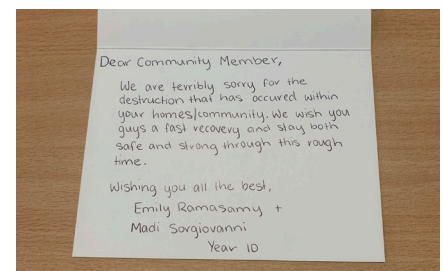 Dear Community Member,
We are terribly sorry for the
destruction that has occured within
your homes/community. We wish you
guys a fast recovery and stay both
safe and strong through this rough
time.
Wishing you all the best,
Emily Ramasamy +
Madi Sorgiovanni
Year 10